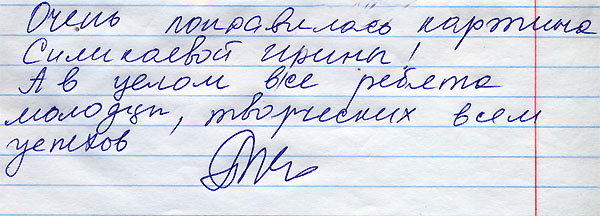 Очень понравилась картина
Силикаевой Ирины!
А в целом все ребята
молодцы, творческих всем
успехов